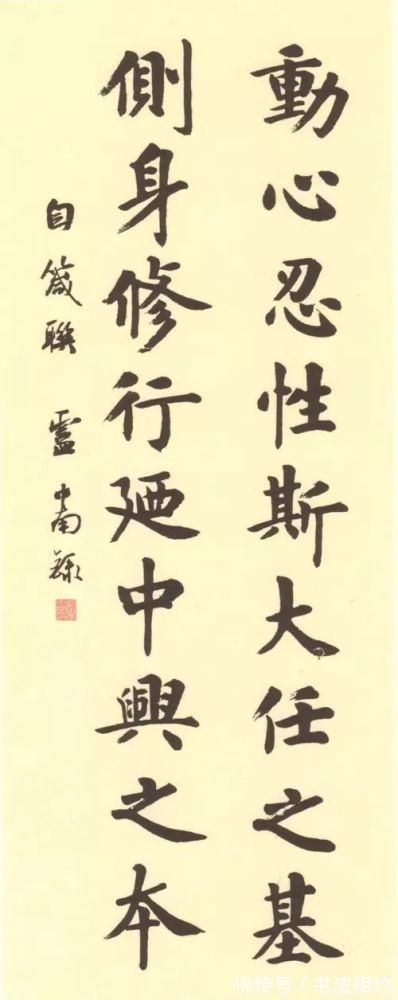 動心忍性斯大任之基
側身修行廼中興之本
自箴聯 盧中南録
快传号/书法相约